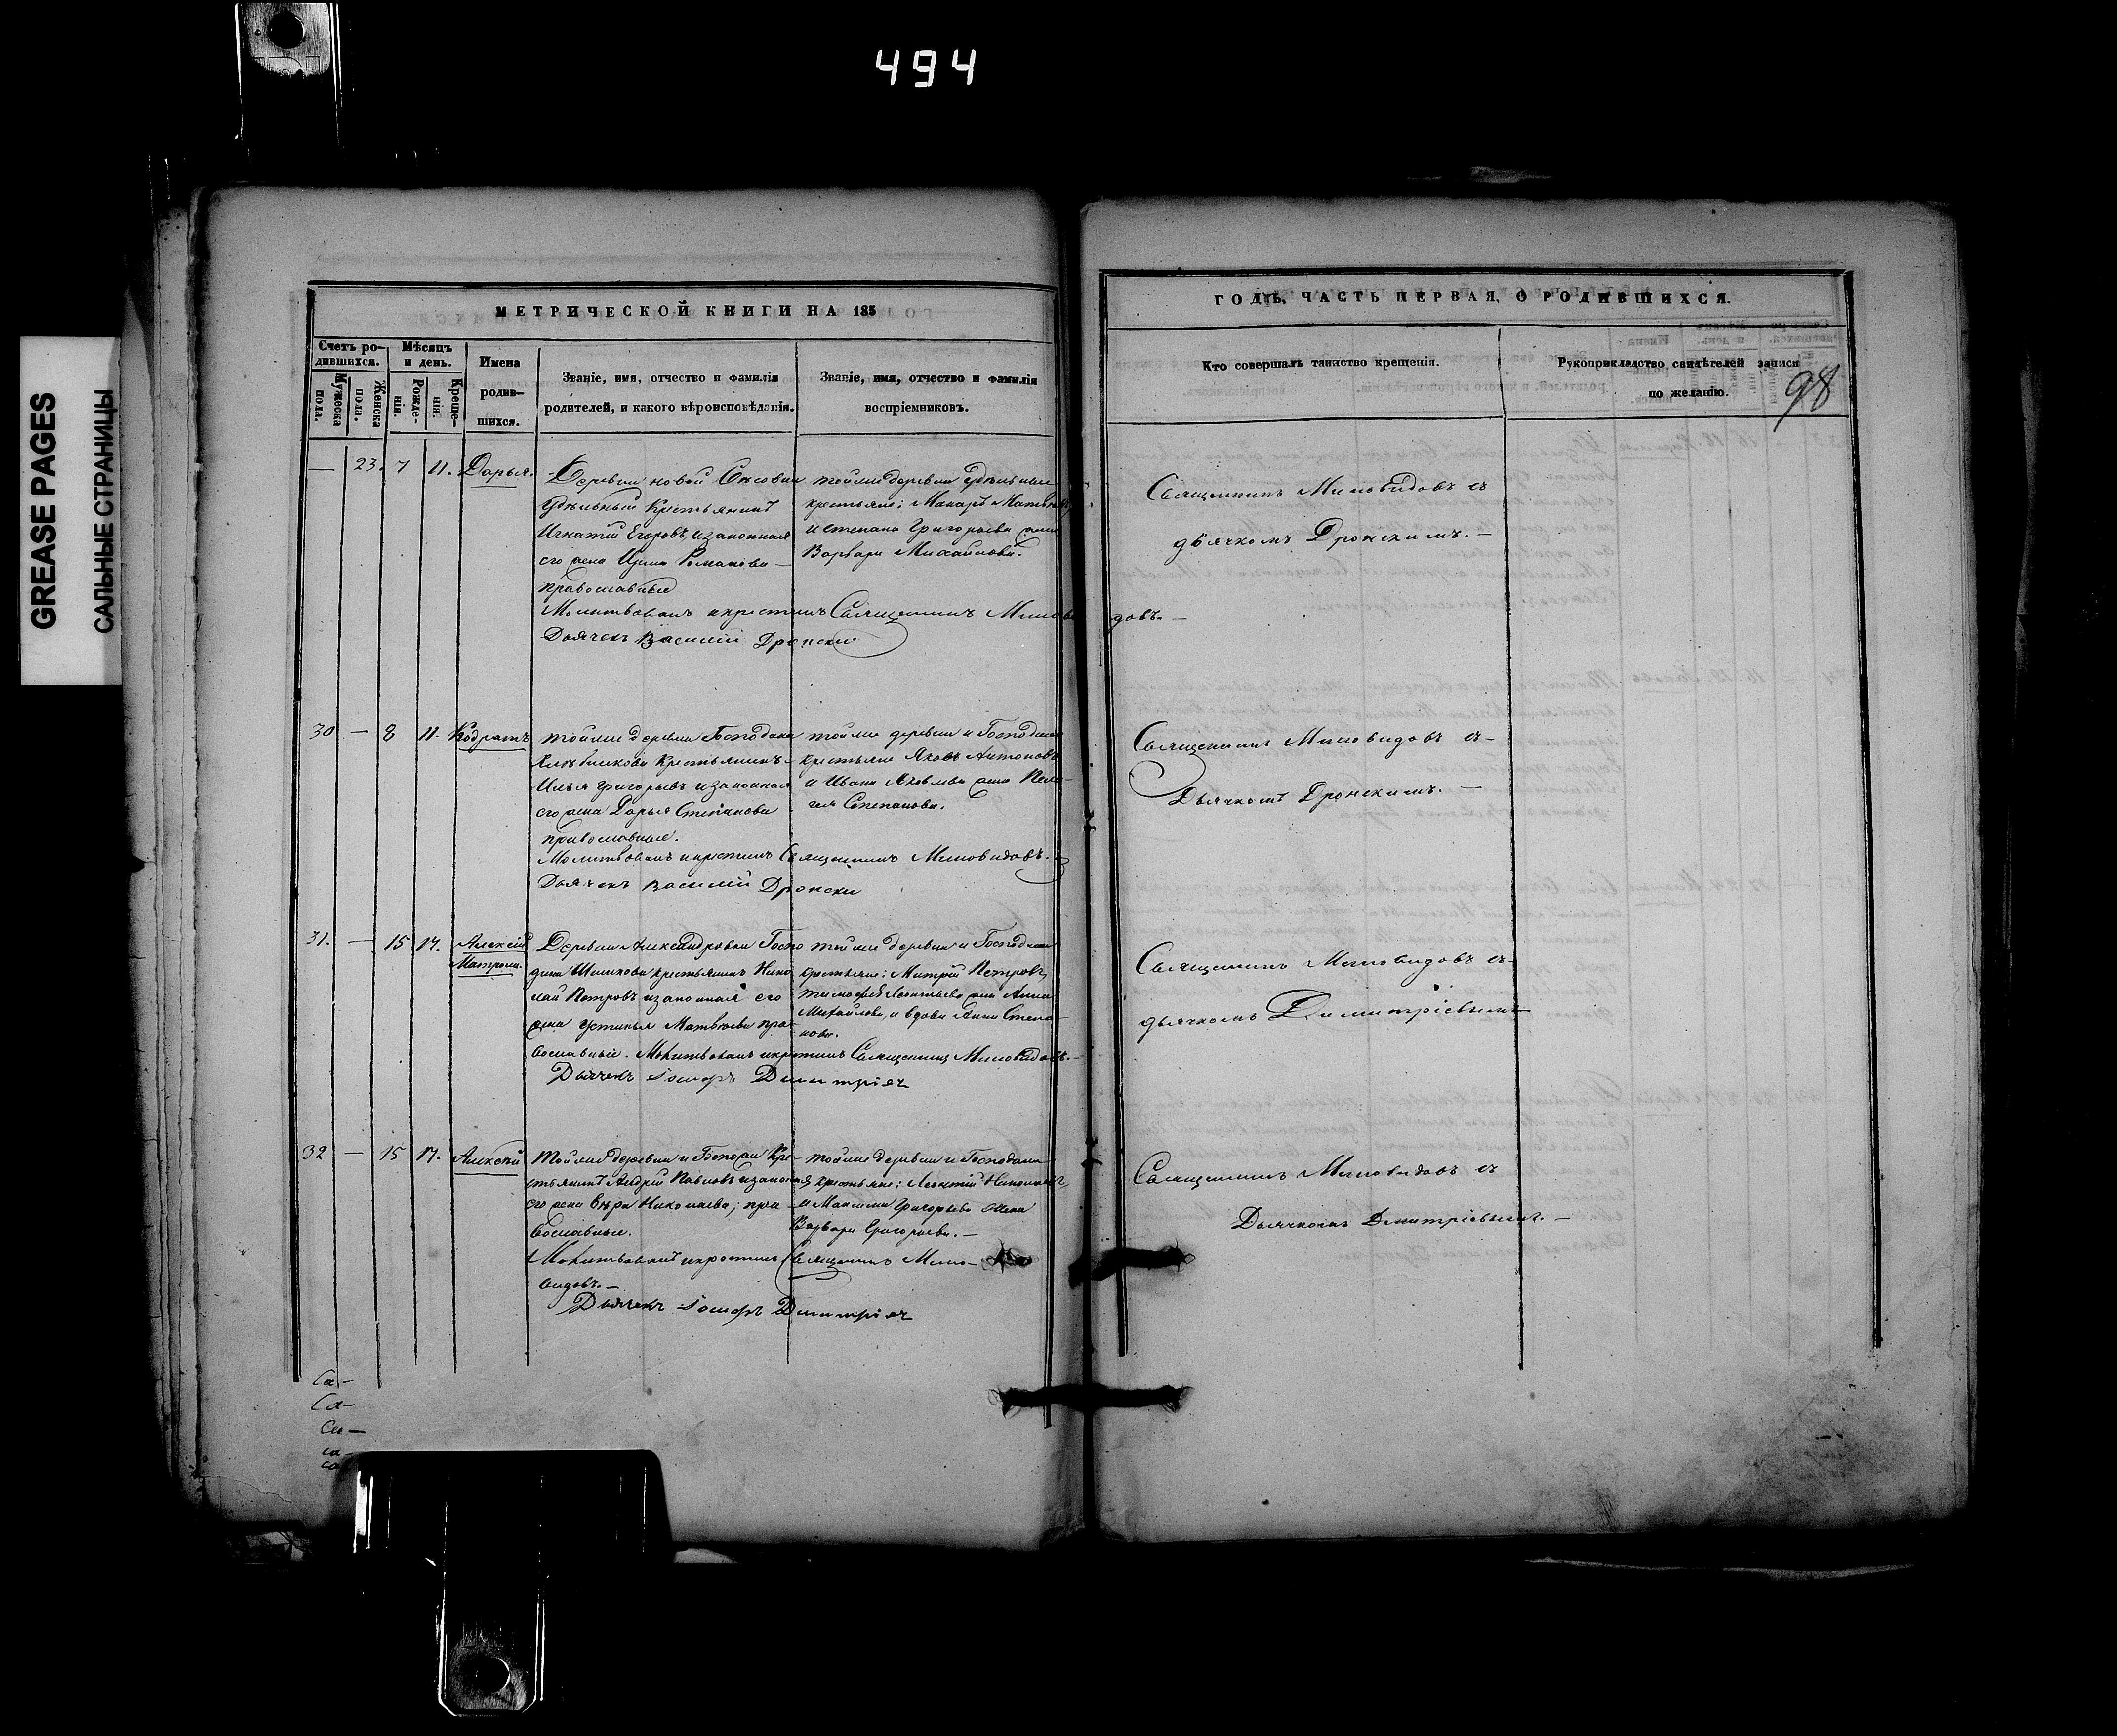 494
GREASE PAGES
САЛЬНЫЕ СТРАНИЦЫ
МЕТРИЧЕСКОЙ КНИГИ НА 185
Счетъ ро-
дившихся.
Мужеска пола.
Женска пола.
Мѣсяцъ
и день.
Рожде-
нія.
Креще-
нія.
Имена
родив-
шихся.
Званіе, имя, отчество и фамилія
родителей, и какого вѣроисповѣданія.
Званіе, имя, отчество и фамилія
воспріемниковъ.
— 23. 7 11. Дарья.
Деревни новой
удѣльный крестьянинъ
Игнатій Егоровъ, и законная
его жена Ирина Романова
православные
Молитвовалъ и крестилъ Священникъ Миловидовъ. —
Дьячекъ Василій Дронски
тойже деревни удѣльные
крестьяне: Макаръ Матвѣевъ
и Степана Григорьева жена
Варвара Михайлова.
30 — 8 11. Кодратъ
тойже деревни Господина
крестьянинъ
Илья Григорьевъ и законная
его жена Дарья Степанова
православные.
Молитвовалъ и крестилъ Священникъ Миловидовъ.
Дьячекъ Василій Дронски
тойже деревни и Господина
крестьяне Яковъ Антоновъ
и Ивана Яковлева жена Пела-
гея Степанова.
31. — 15 17. Алексій
Матрона.
Деревни Александровки Госпо
дина Шишкова крестьянинъ Нико
лай Петровъ и законная его
жена Устинья Матвѣева пра-
вославные. Молитвовалъ и крестилъ Священникъ Миловидовъ. —
Дьячекъ Димитріев
тойже деревни и Господина
крестьяне: Митрій Петровъ,
Тимофея Леонтьева жена Анна
Михайлова, и вдова Анна Степа-
нова.
32 — 15 17. Алексѣй
Тойже деревни и Госпожи Кре-
стьянинъ Андрій Павловъ и законная
его жена Вѣра Николаева; пра
вославные.
Молитвовалъ и крестилъ Священникъ Мило-
видовъ. —
Дьячекъ Димитріев
тойже деревни и Господина
крестьяне: Леонтій Николаевъ
и Максима Григорьева жена
Варвара Григорьева. —
Са-
Са-
Са-
са-
са-
ГОДЪ, ЧАСТЬ ПЕРВАЯ, О РОДИВШИХСЯ.
Кто совершалъ таинство крещенія.
Рукоприкладство свидѣтелей записи
по желанію.
98
Священникъ Миловидовъ съ
дьячкомъ Дронскимъ. —
Священникъ Миловидовъ съ-
Дьячкомъ Дронскимъ. —
Священникъ Миловидовъ съ-
дьячкомъ Димитріевымъ
Священникъ Миловидовъ съ
Дьячкомъ Дмитріевымъ. —